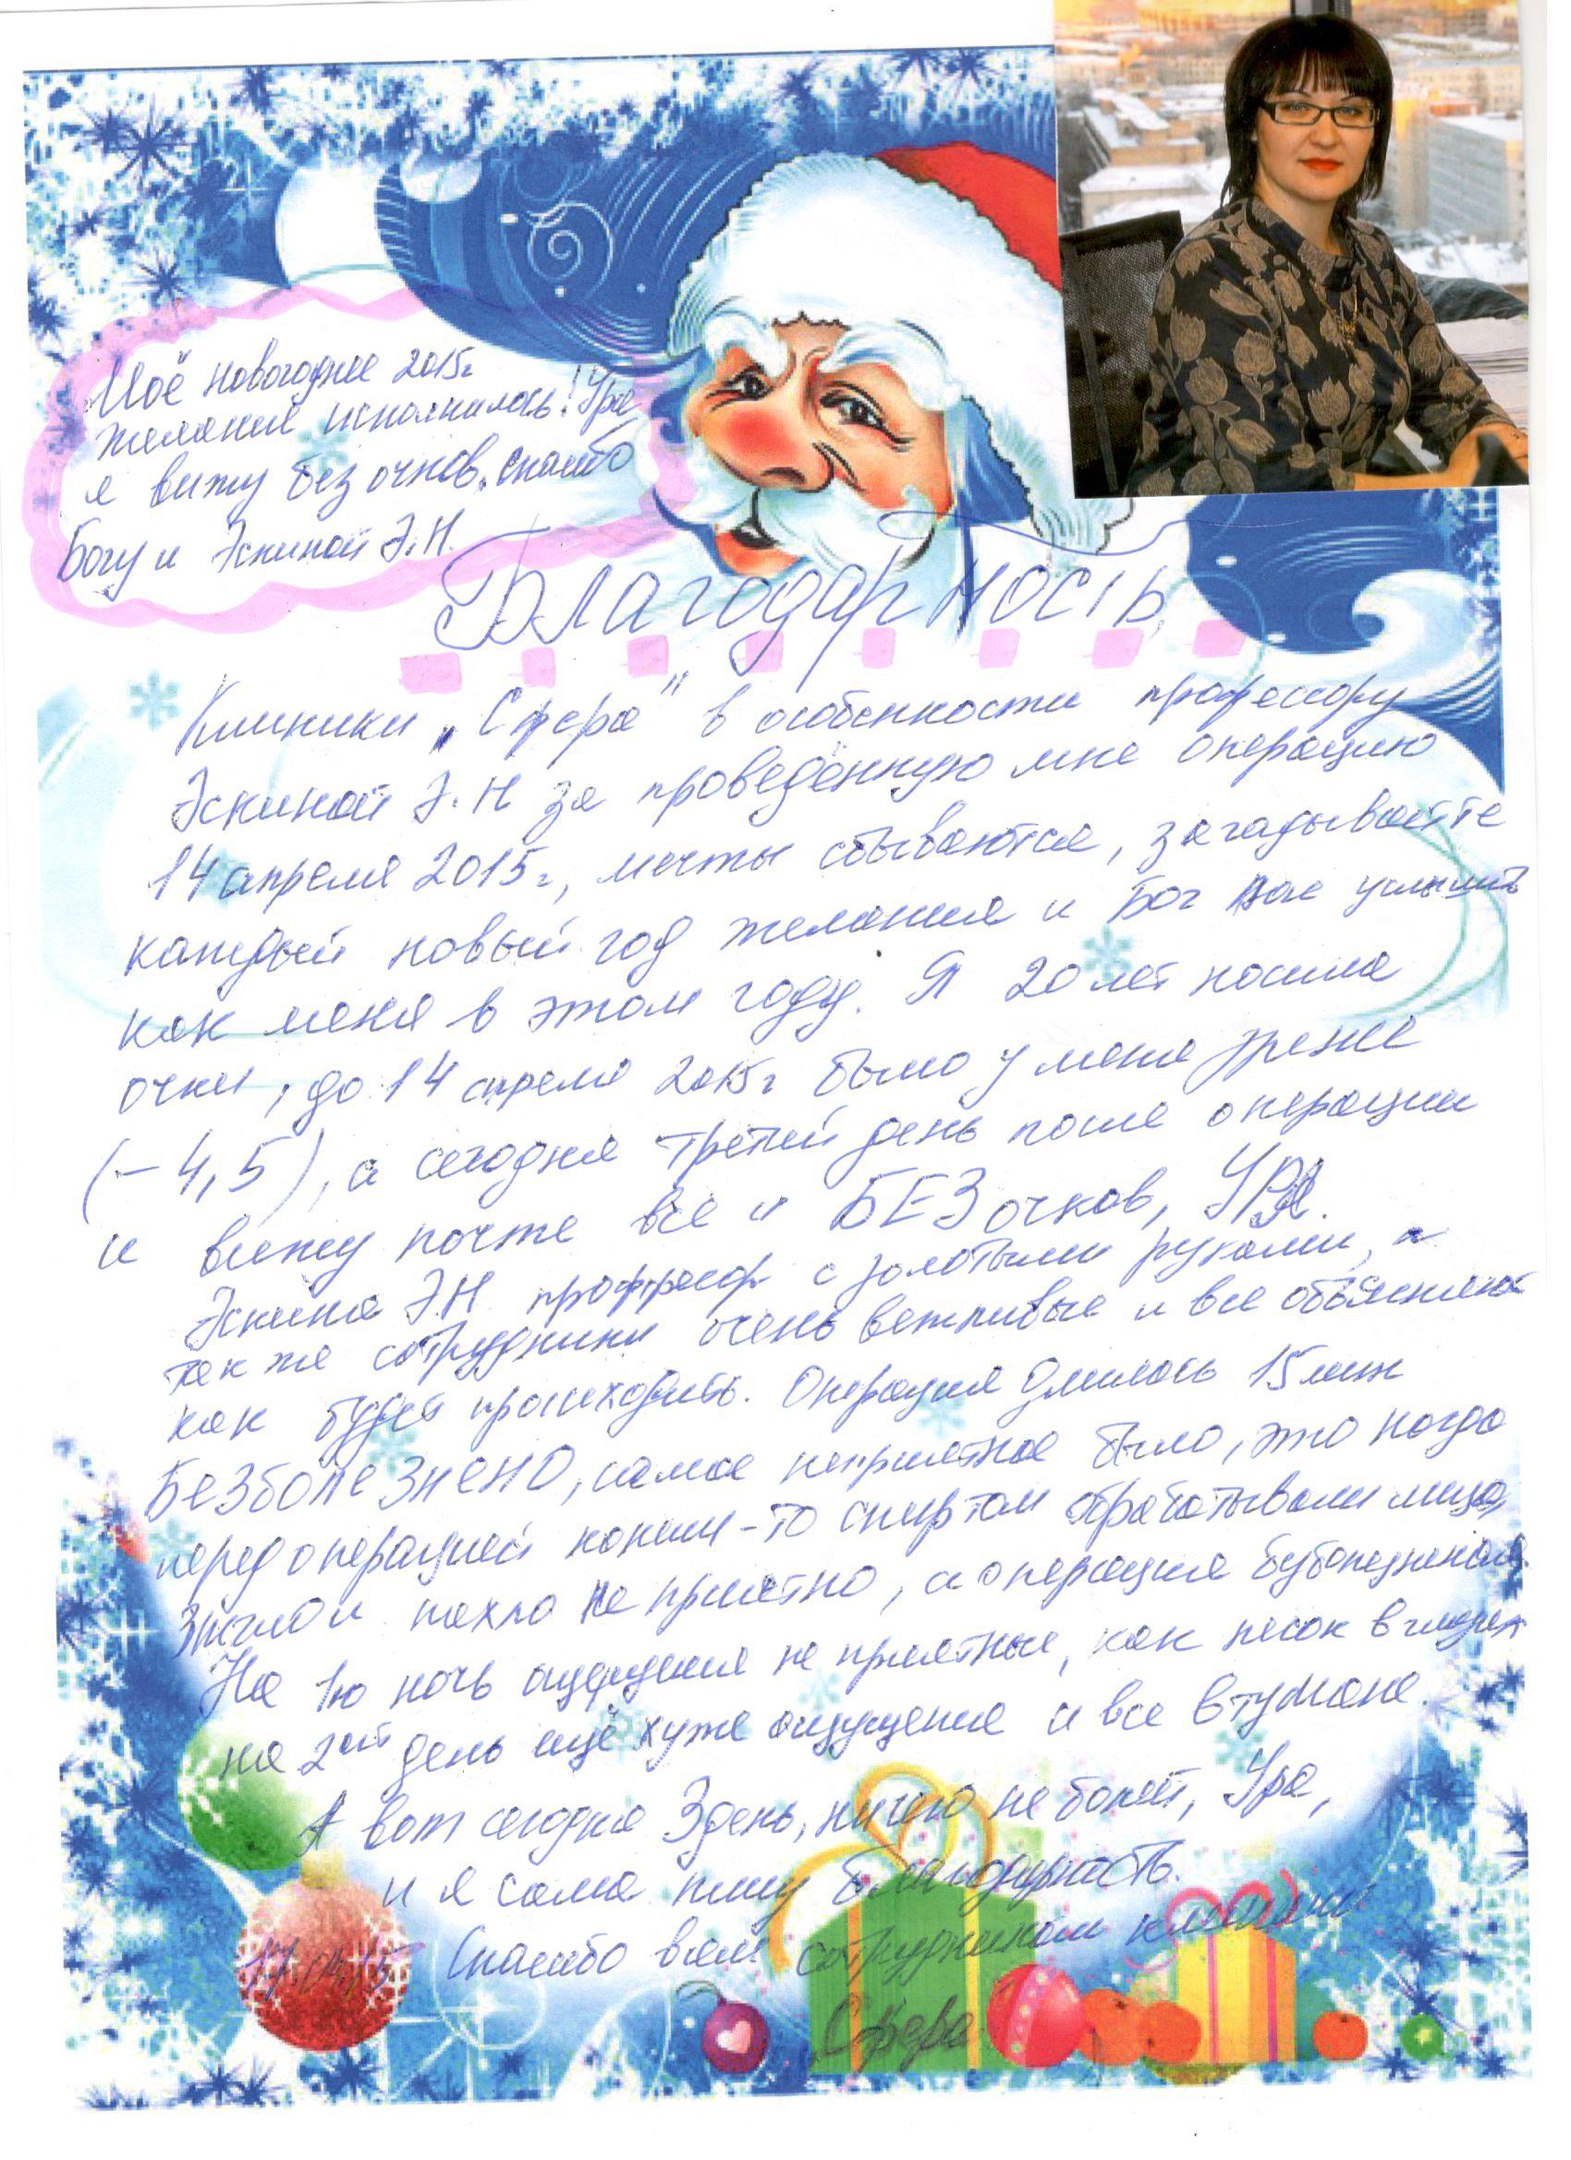 Моё новогоднее 2015г
желание исполнилось! Ура
я вижу без очков. спасибо
Богу и Эскиной Э.Н.
Благодарность
Клиники „Сфера" в особенности профессору
Эскиной Э.Н за проведённую мне операцию
14 апреля 2015г, мечты сбываются, загадывайте
каждый новый год желания и Бог Вас услышит
как меня в этом году. Я 20 лет носила
очки, до 14 апреля 2015г было у меня зрение
(-4,5), а сегодня третий день после операции
и вижу почти все и БЕЗ очков, УРА.
Эскина Э.Н профессор с золотыми руками, а
так же сотрудники очень вежливые и все объяснили
как будет происходить. Операция длилась 15 мин
Безболезнено, самое неприятное было, это когда
перед операцией каким-то спиртом обрабатывали лицо,
жгло и пахло не приятно, а операция безболезненная.
На 1ю ночь ощущения не приятные, как песок в глазах
на 2ой день ещё хуже ощущения и все в тумане.
А вот сегодня 3 день, ничего не болит, Ура,
и я сама пишу благодарность.
17.04.15 Спасибо всем сотрудникам клиники
„Сфера"